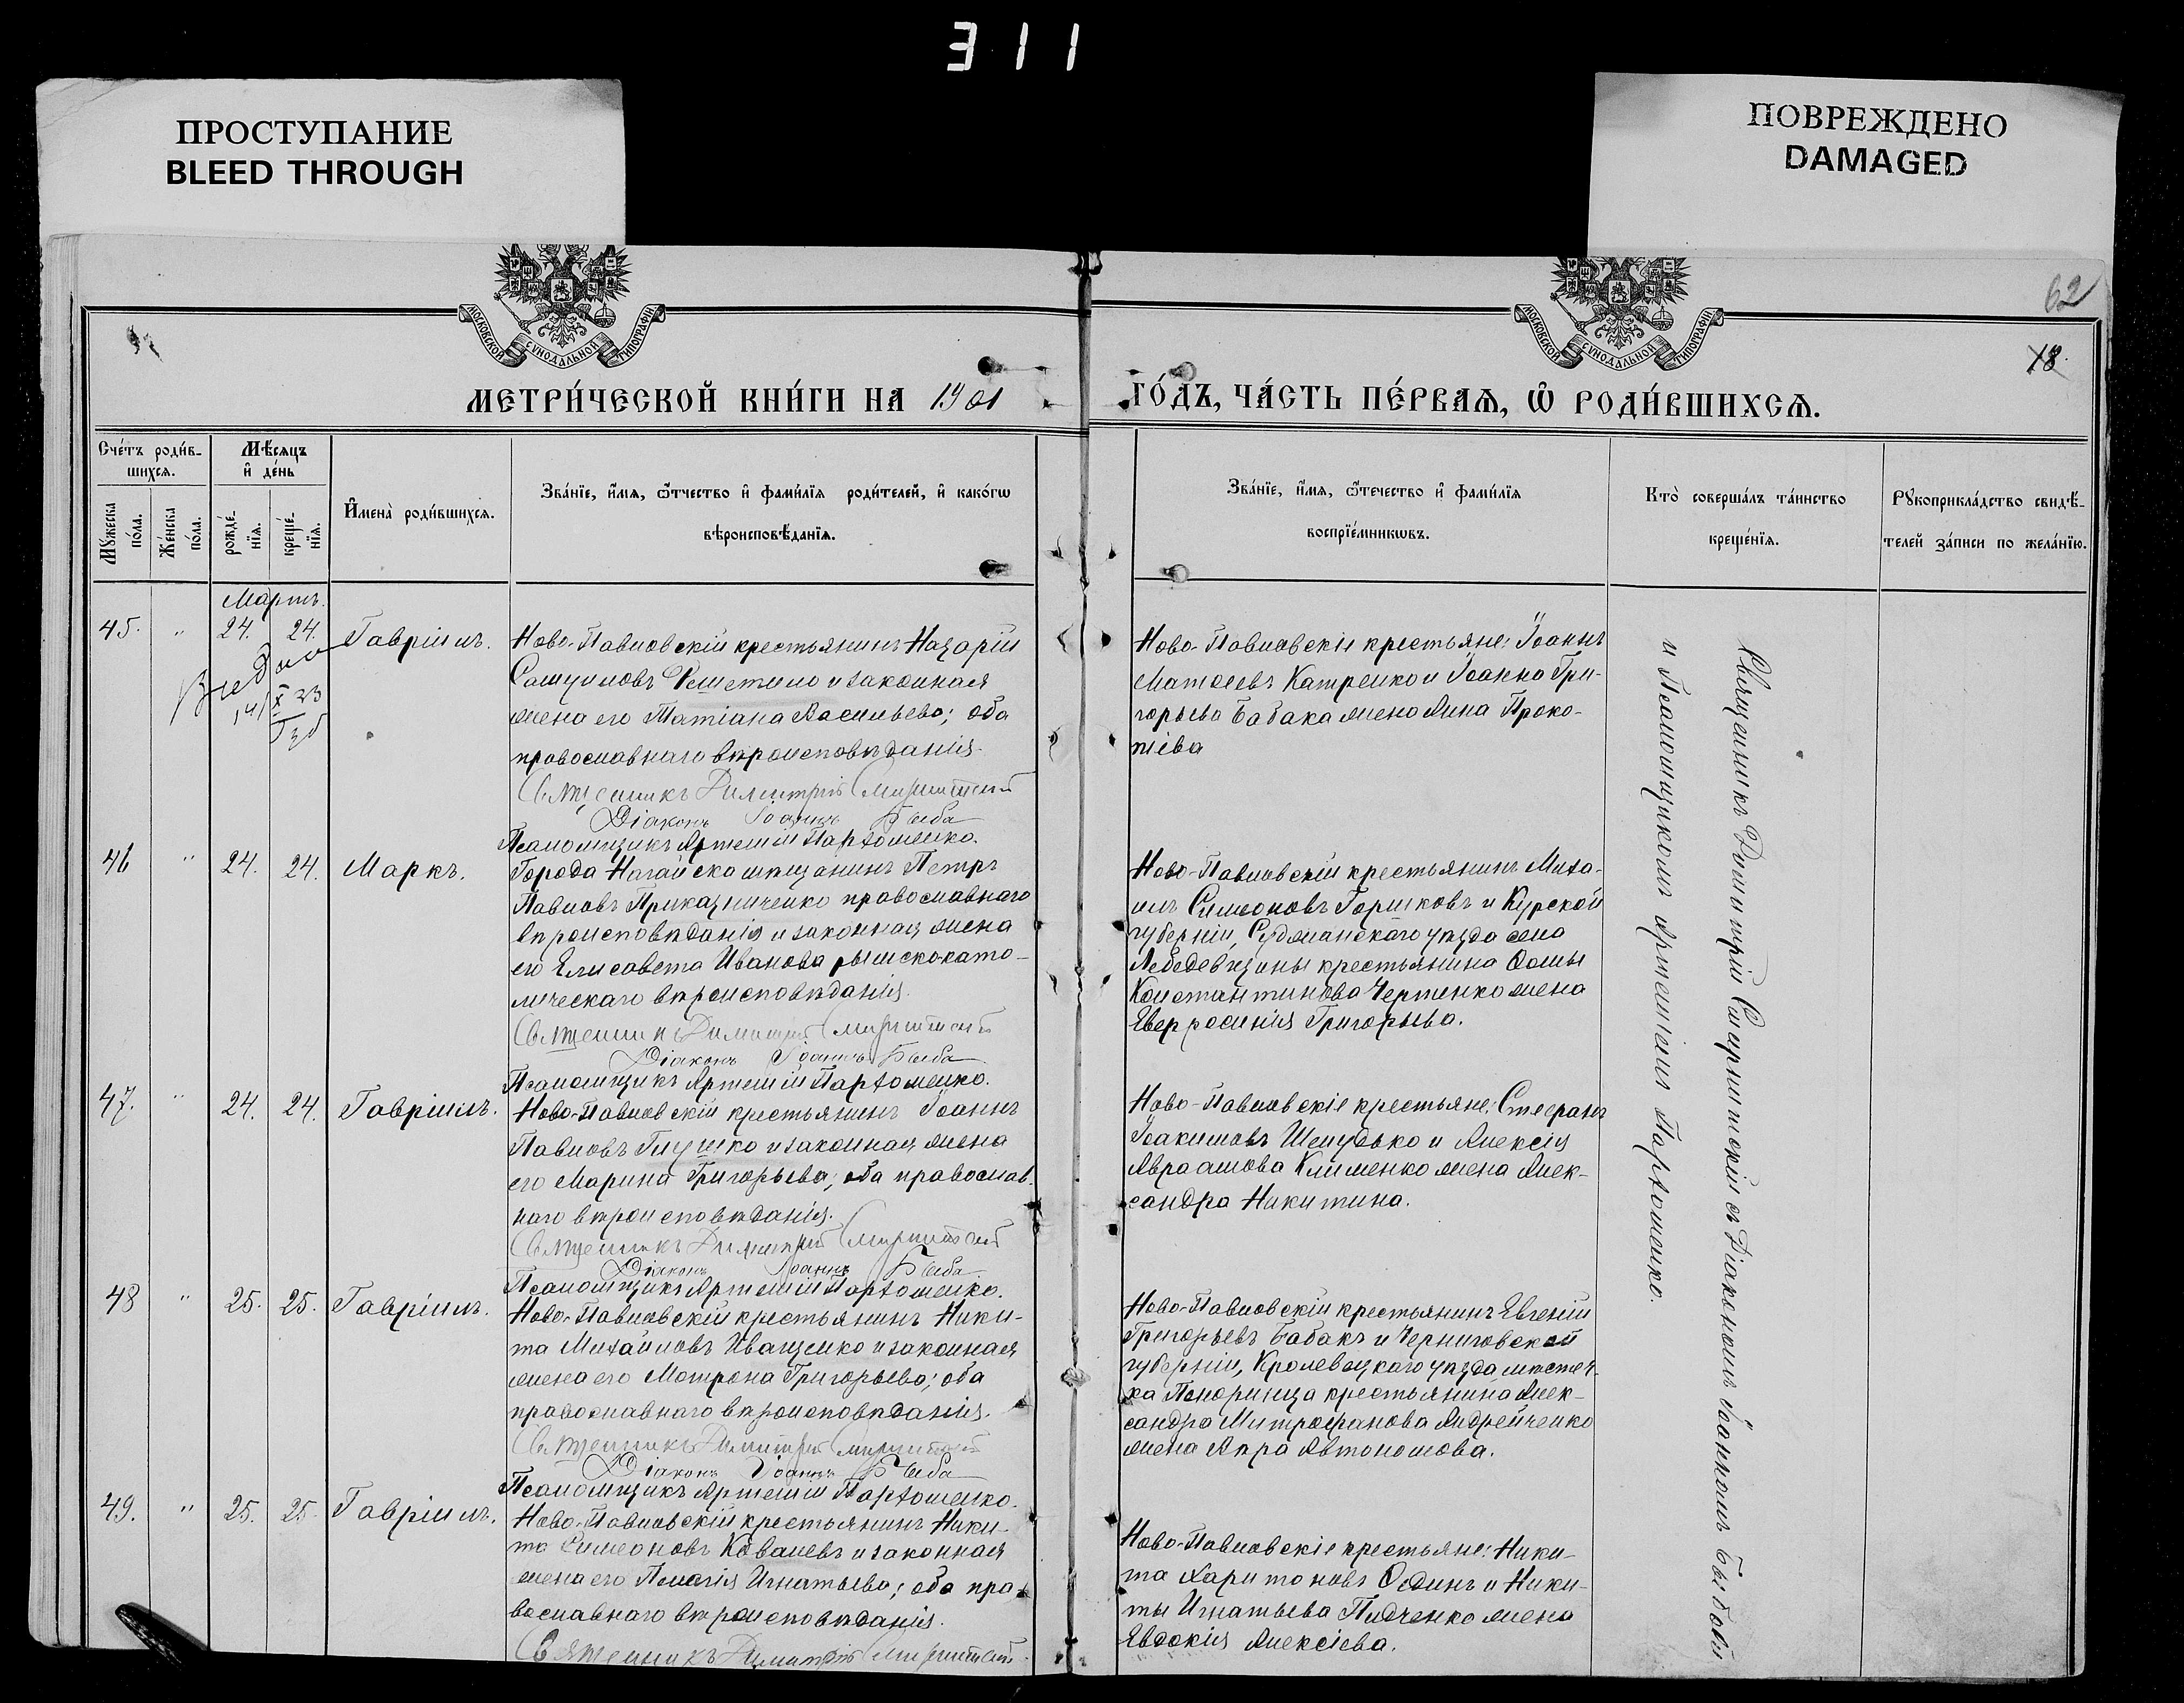 311
ПРОСТУПАНИЕ
BLEED THROUGH
ПОВРЕЖДЕНО
DAMAGED
МОСКОВСКОЙ СѴНОДАЛЬНОЙ ТИПОГРАФІИ
МОСКОВСКОЙ СѴНОДАЛЬНОЙ ТИПОГРАФІИ
62
18.
МЕТРИ́ЧЕСКОЙ КНИ́ГИ НА 1901
ГО́ДЪ, ЧА́СТЬ ПЕ́РВАѦ, Ѡ РОДИ́ВШИХСѦ.
Сче́тъ роди́в-
шихсѧ.
Мꙋ́жеска
по́ла.
Же́нска
по́ла.
Мѣ́сѧцъ
и҆ де́нь
рожде́-
нїѧ.
креще́-
нїѧ.
И҆мена̀ роди́вшихсѧ.
Зва́нїе, и҆́мѧ, ѻ҆́тчество и҆ фамѝлїѧ роди́телей, и҆ како́гѡ
вѣроисповѣ́данїѧ.
Зва́нїе, и҆́мѧ, ѻ҆́течество и҆ фамѝлїѧ
воспрїе́мникѡвъ.
Кто̀ соверша́лъ та́инство
креще́нїѧ.
Рꙋкоприкла́дство свидѣ́-
телей за́писи по жела́нїю.
Мартъ.
45. " 24. 24. Гавріилъ.
Ново-Павловскій крестьянинъ Назарій
и законная
жена его Татіана Васильева; оба
православнаго вѣроисповѣданія.
Священникъ Димитрій
Діаконъ Іоаннъ Быба
Псаломщикъ Артемій Пархоменко.
Ново-Павловскіе крестьяне: Іоаннъ
Матѳеевъ Катренко и Іоанна Гри-
горьева Бабака жена Анна Проко-
піева
46 " 24. 24. Маркъ.
Города Ногайска мѣщанинъ Петръ
Павловъ Приказниченко православнаго
вѣроисповѣданія и законная жена
его Елисавета Иванова римскокато-
лическаго вѣроисповѣданія.
Священникъ Димитрій
Діаконъ Іоаннъ Быба
Псаломщикъ Артемій Пархоменко.
Ново-Павловскій крестьянинъ Миха-
илъ Симеоновъ Горшковъ и Курской
губерніи, Суджанскаго уѣзда села
Лебедевщины крестьянина Ѳомы
Константинова Чертенко жена
Евфросинія Григорьева.
47. " 24. 24. Гавріилъ.
Ново-Павловскій крестьянинъ Іоаннъ
Павловъ Глушко и законная жена
его Марина Григорьева; оба православ-
наго вѣроисповѣданія.
Священникъ Димитрій
Діаконъ Іоаннъ Быба
Псаломщикъ Артемій Пархоменко.
Ново-Павловскіе крестьяне: Стефанъ
Іоакимовъ Шелудько и Алексія
Авраамова Клименко жена Алек-
сандра Никитина.
48 " 25. 25. Гавріилъ.
Ново-Павловскій крестьянинъ Ники-
та Михайловъ Иващенко и законная
жена его Матрона Григорьева; оба
православнаго вѣроисповѣданія.
Священникъ Димитрій
Діаконъ Іоаннъ Быба
Псаломщикъ Артемій Пархоменко.
Ново-Павловскій крестьянинъ Евгеній
Григорьевъ Бабакъ и Черниговской
губерніи, Кролевецкаго уѣзда мѣстеч-
ка Понорница крестьянина Алек-
сандра Митрофанова Андрейченко
жена Автономова.
49. " 25. 25. Гавріилъ.
Ново-Павловскій крестьянинъ Ники-
та Симеоновъ Ковалевъ и законная
жена его Пелагія Игнатьева; оба пра-
вославнаго вѣроисповѣданія.
Священникъ Димитрій
Ново-Павловскіе крестьяне: Ники-
та Харитоновъ и Ники-
ты Игнатьева жена
Евдокія Алексіева.
Священникъ Димитрій съ Діакономъ Іоанномъ Быбой
и Псаломщикомъ Артеміемъ Пархоменко.